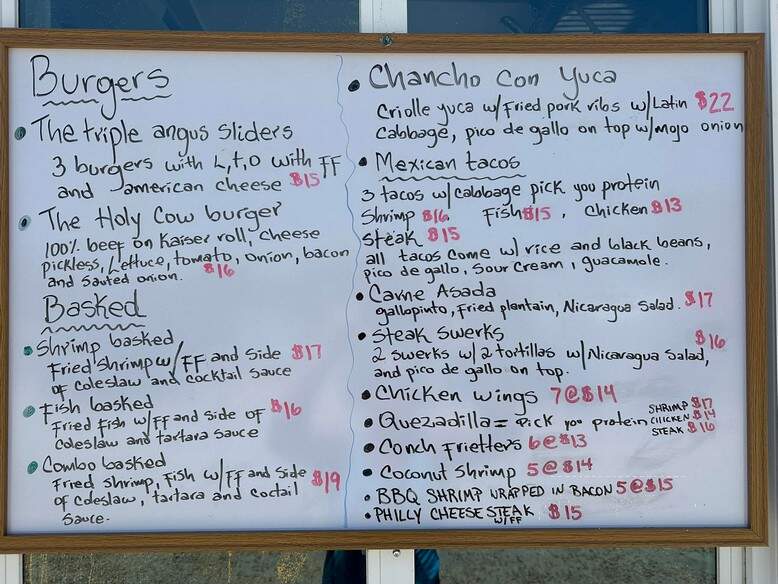 Burgers
• The triple angus sliders
3 burgers with L,t,o with FF
and american cheese $15
• The Holy Cow burger
100% beef on Kaiser roll, cheese
pickless, Lettuce, tomato, onion, bacon
and sauted onion. $16
Basked
• Shrimp basked
Fried shrimp w/FF and side $17
of coleslaw and cocktail sauce
• Fish basked
Fried fish w/FF and side of $16
coleslaw and tartara sauce
• Combo basked
Fried shrimp, Fish w/FF and side $19
of coleslaw, tartara and coctail
sauce.
• Chancho con yuca
Criolle yuca w/Fried pork ribs w/Latin $22
cabbage, pico de gallo on top w/mojo onion
• Mexican tacos
3 tacos w/cabbage pick you protein
Shrimp $16 Fish $15, Chicken $13
steak $15
all tacos come w/ rice and black beans,
pico de gallo, sour cream, guacamole.
• Carne Asada
gallopinto, Fried plantain, Nicaragua Salad. $17
• Steak swerks $16
2 swerks w/2 tortillas w/Nicaragua Salad,
and pico de gallo on top.
• Chicken wings 7@$14
• Queziadilla = Pick you protein SHRIMP $17
CHICKEN $14
STEAK $16
• Conch Frietters 6@$13
• Coconut shrimp 5@$14
• BBQ SHRIMP WRAPPED IN BACON 5@$15
• PHILLY CHEESE STEAK $15
W/FF